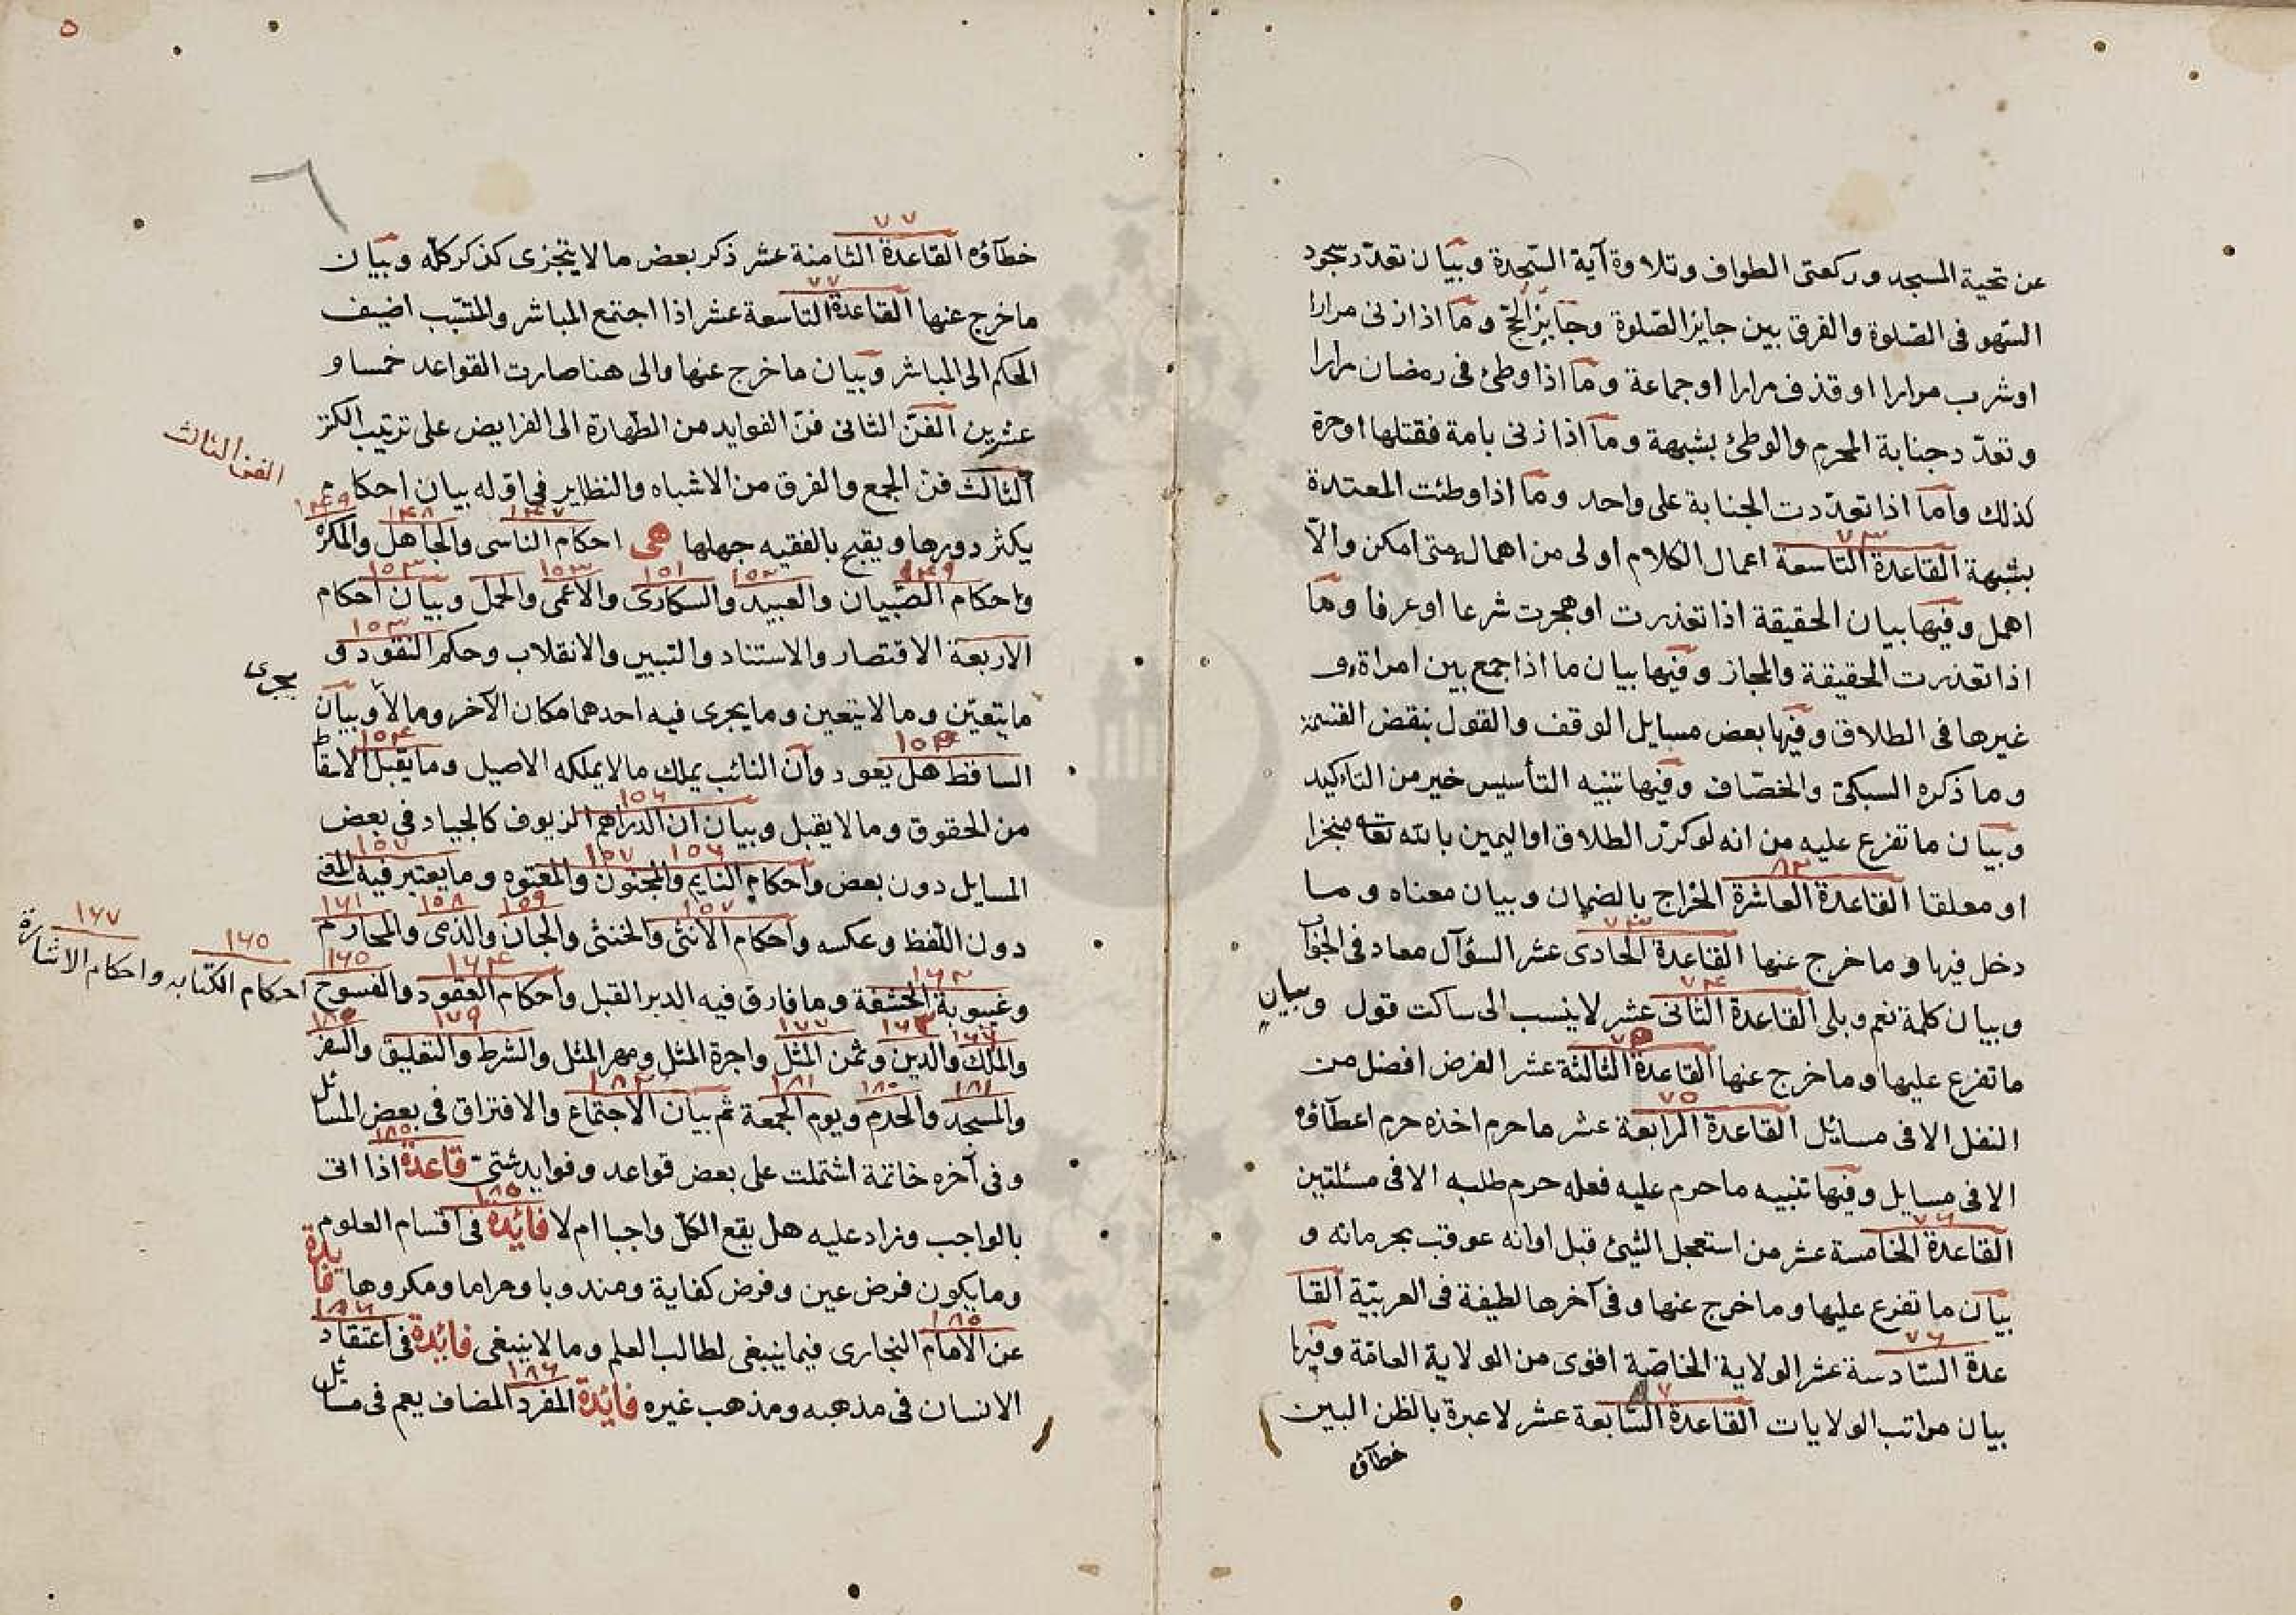 عن تحية المسجد وركعتى الطواف وتلاوة آية السّجدة وبيان تعدّد سجود
السّهو فى الصّلوة والفرق بين جابر الصّلوة وجابر الحجّ وما اذا زنى مرارا
او شرب مرارا او قذف مرارا او جماعة وما اذا وطئ فى رمضان مرارا
وتعدّد جناية المحرم والوطئ بشبهة وما اذا زنى بامة فقتلها او حرة
كذلك واما اذا تعدّدت الجناية على واحد وما اذا وطئت المعتدة
٧٣
بشبهة القاعدة التاسعة اعمال الكلام اولى من اهماله متى امكن والّا
اهمل وفيها بيان الحقيقة اذا تعذرت او هجرت شرعا او عرفا وما
اذا تعذرت الحقيقة والمجاز وفيها بيان ما اذا جمع بين امراة و
غيرها فى الطلاق وفيها بعض مسايل الوقف والقول بنقض القسمة
وما ذكره السبكى والخصّاف وفيها تنبيه التأسيس خير من التاكيد
وبيان ما تفرع عليه من انه لو كرّر الطلاق او اليمين بالله تعا منجزا
٨٢
او معلقا القاعدة العاشرة الخراج بالضمان وبيان معناه وما
٧٣
دخل فيها وما خرج عنها القاعدة الحادى عشر السؤال معاد فى الجواب
٧٤
وبيان كلمة نعم وبلى القاعدة الثانى عشر لا ينسب الى ساكت قول وبيان
ما تفرع عليها وما خرج عنها القاعدة الثالثة عشر الفرض افضل من
٧٥
النفل الا فى مسائل القاعدة الرابعة عشر ما حرم اخذه حرم اعطاؤه
الا فى مسايل وفيها تنبيه ما حرم عليه فعله حرم طلبه الا فى مسئلتين
٧٦
القاعدة الخامسة عشر من استعجل الشئ قبل اوانه عوقب بحرمانه و
بيان ما تفرع عليها وما خرج عنها وفى آخرها لطيفة فى العربيّة القا
٧٦
عدة السّادسة عشر الولاية الخاصّة اقوى من الولاية العامّة وفيها
بيان مراتب الولايات القاعدة السّابعة عشر لا عبرة بالظن البين
خطآؤ
٥
٧٧
خطآؤه القاعدة الثامنة عشر ذكر بعض ما لا يتجزى كذكر كلّه وبيان
٧٧
ما خرج عنها القاعدة التاسعة عشر اذا اجتمع المباشر والمتسّبب اضيف
الحكم الى المباشر وبيان ما خرج عنها والى هنا صارت القواعد خمسا و
عشرين الفنّ الثانى فنّ الفوايد من الطّهارة الى الفرايض على ترتيب الكنز
الفن الثالث
الثالث فنّ الجمع والفرق من الاشباه والنظاير فى اوله بيان احكام
١٤٧ ١٤٨ ١٤٩
يكثر دورها ويقبح بالفقيه جهلها هى احكام الناسى والجاهل والمكره
١٤٩ ١٥٢ ١٥١ ١٥٣ ١٥٣
واحكام الصّبيان والعبيد والسكارى والاعمى والحمل وبيان احكام
١٥٣
الاربعة الاقتصار والاستناد والتبيين والانقلاب وحكم النقود وفى
يجرى
ما يتعيّن وما لا يتعين وما يجرى فيه احدهما مكان الآخر وما لا وبيان
١٥٤ ١٥٤
الساقط هل يعود وان النائب يملك ما لا يملكه الاصيل وما يقبل الاسقاط
١٥٦
من الحقوق وما لا يقبل وبيان ان الدراهم الزيوف كالجياد فى بعض
١٥٦ ١٥٧ ١٥٧
المسايل دون بعض واحكام النايم والمجنون والمعتوه وما يعتبر فيه المعنى
١٥٧ ١٥٩ ١٥٨ ١٦١
دون اللّفظ وعكسه واحكام الانثى والخنثى والجان والذمى والمحارم
١٦٢ ١٦٤ ١٦٥
وغيبوبة الحشفة وما فارق فيه الدبر القبل واحكام العقود والفسوخ
١٦٥ ١٦٧
احكام الكتابه واحكام الاشارة
١٧٩
والملك والدين وثمن المثل واجرة المثل ومهر المثل والشرط والتعليق والسفر
١٨١ ١٨٠ ١٨١ ١٨٢
والمسجد والحرم ويوم الجمعة ثم بيان الاجتماع والافتراق فى بعض المسائل
١٨٥
وفى آخره خاتمة اشتملت على بعض قواعد وفوايد شتى قاعدة اذا اتى
١٨٥
بالواجب وزاد عليه هل يقع الكلّ واجبا ام لا فائدة فى اقسام العلوم
وما يكون فرض عين وفرض كفاية ومندوبا وحراما ومكروها فايدة
١٨٥ ١٨٦
عن الامام البخارى فيما ينبغى لطالب العلم وما لا ينبغى فائدة فى اعتقاد
١٨٦
الانسان فى مذهبه ومذهب غيره فائدة المفرد المضاف يعم فى مسائل